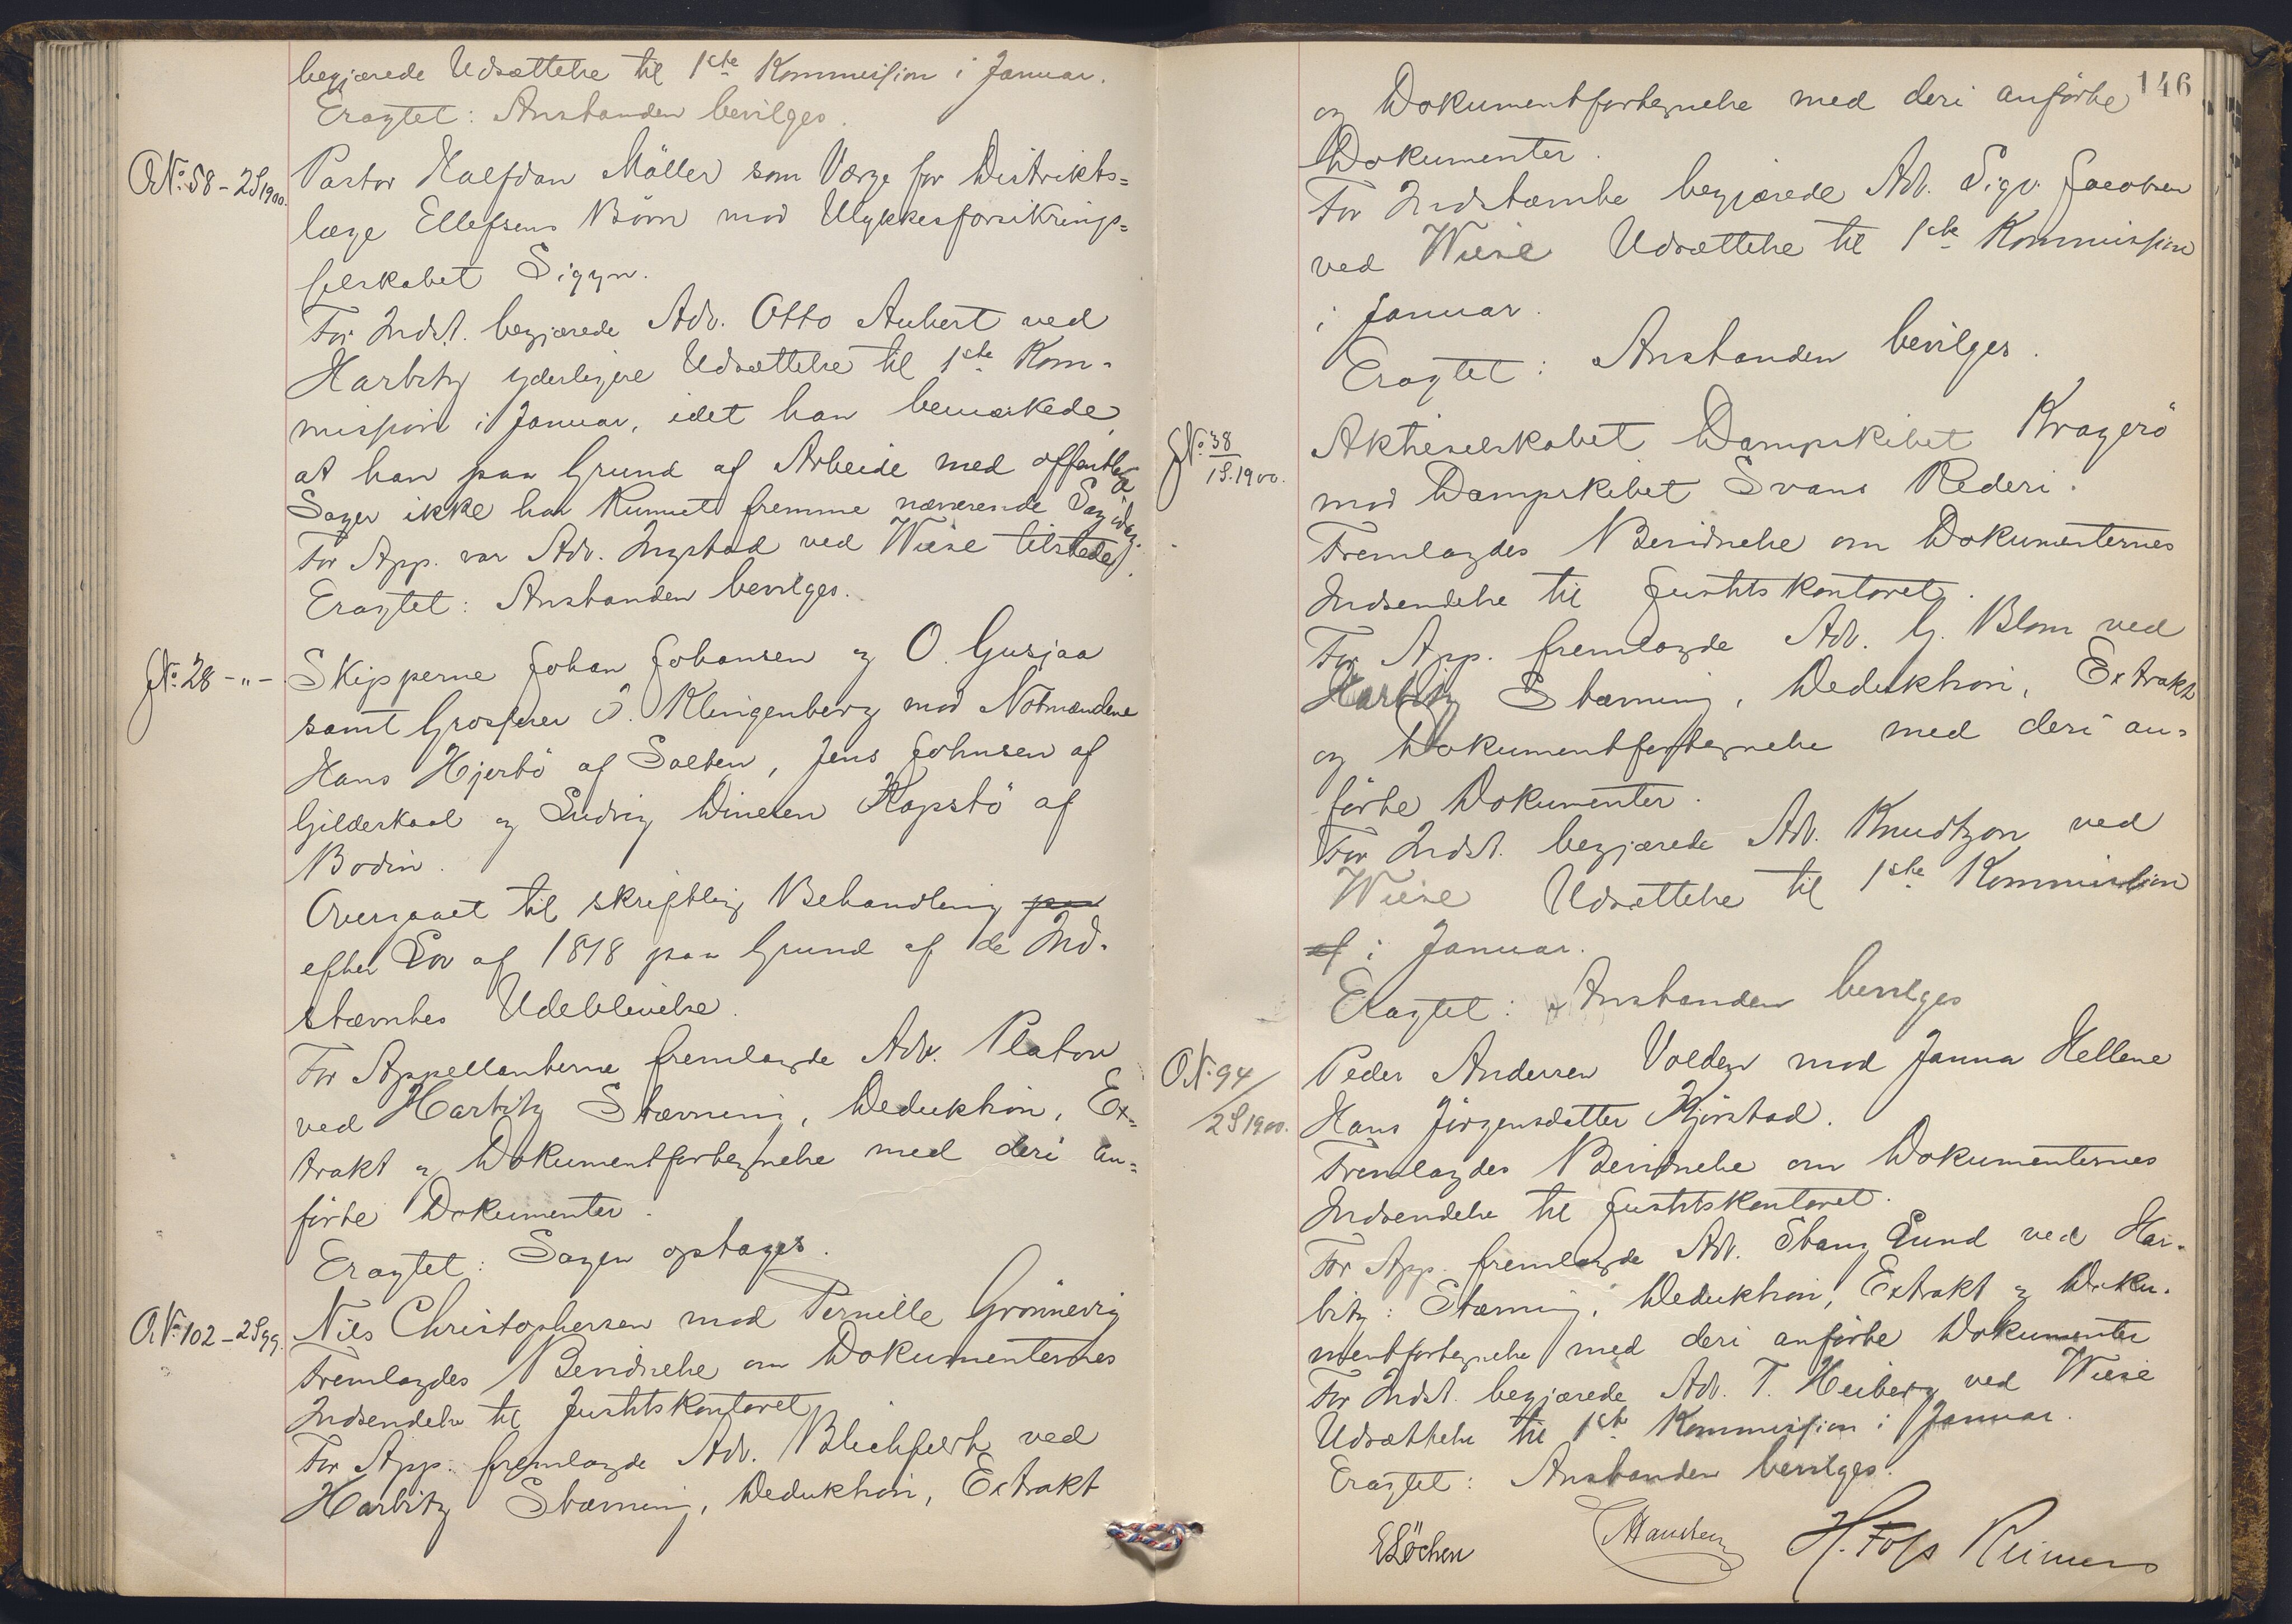 begjærede Udsættelse til 1ste Kommission i Januar.
Eragtet: Anstanden bevilges.
O.No. 58 - 2S1900.
Pastor Halfdan Möller som Værge for Distrikts=
læge Ellefsens Börn mod Ulykkesforsikrings=
selskabet Sigyn.
For Indst. begjærede Adv. Otto Aubert ved
Harbitz yderligere Udsættelse til 1ste Kom-
mission i Januar, idet han bemærkede,
at han paa Grund af Arbeide med offentlige
Sager ikke har kunnet fremme nærværende Sag idag.
For App. var Adv. Ingstad ved Wiese tilstede.
Eragtet: Anstanden bevilges.
J.No. 28 - " -
Skipperne Johan Johansen og O. Gusjaa
samt Grosserer O. Klingenberg mod Notmændene
Hans Hjertö af Salten, Jens Johnsen af
Gilderskaal og Ludvig Dinesen Kopstö af
Bodin.
Overgaaet til skriftlig Behandling paa
efter Lov af 1818 paa Grund af de Ind-
stævntes Udeblivelse.
For Appellanterne fremlagde Adv. Platou
ved Harbitz Stævning, Deduktion, Ex=
trakt og Dokumentfortegnelse med deri an=
förte Dokumenter.
Eragtet: Sagen optages.
O.No. 102 - 2S99.
Nils Christophersen mod Pernille Grönnevig
Fremlagdes Bevidnelse om Dokumenternes
Indsendelse til Justitskontoret
For App. fremlagde Adv. Blichfeldt ved
Harbitz Stævning, Deduktion, Extrakt
146
og Dokumentfortegnelse med deri anförte
Dokumenter.
For Indstævnte begjærede Adv. Sigv. Jacobsen
ved Wiese Udsættelse til 1ste Kommission
i Januar.
Eragtet: Anstanden bevilges.
J.No. 38
1S.1900.
Aktieselskabet Dampskibet Kragerö
mod Dampskibet Svans Rederi.
Fremlagdes Bevidnelse om Dokumenternes
Indsendelse til Justitskontoret.
For App. fremlagde Adv. G. Blom ved
Harbitz Stævning, Deduktion, Extrakt
og Dokumentfortegnelse med deri an=
förte Dokumenter.
For Indst. begjærede Adv. Knudtzon ved
Wiese Udsættelse til 1ste Kommission
af i Januar.
Eragtet: Anstanden bevilges
O.No. 94
2S1900.
Peder Andersen Volden mod Janna Hellene
Hans Jörgensdatter Kjörstad.
Fremlagdes Bevidnelse om Dokumenternes
Indsendelse til Justitskontoret.
For App. fremlagde Adv. Stang Lund ved Har-
bitz: Stævning, Deduktion, Extrakt og Doku-
mentfortegnelse med deri anförte Dokumenter
For Indst. begjærede Adv. T. Heiberg ved Wiese
Udsættelse til 1ste Kommission i Januar.
Eragtet: Anstanden bevilges.
E Löchen Hansteen H. Foss Reimers